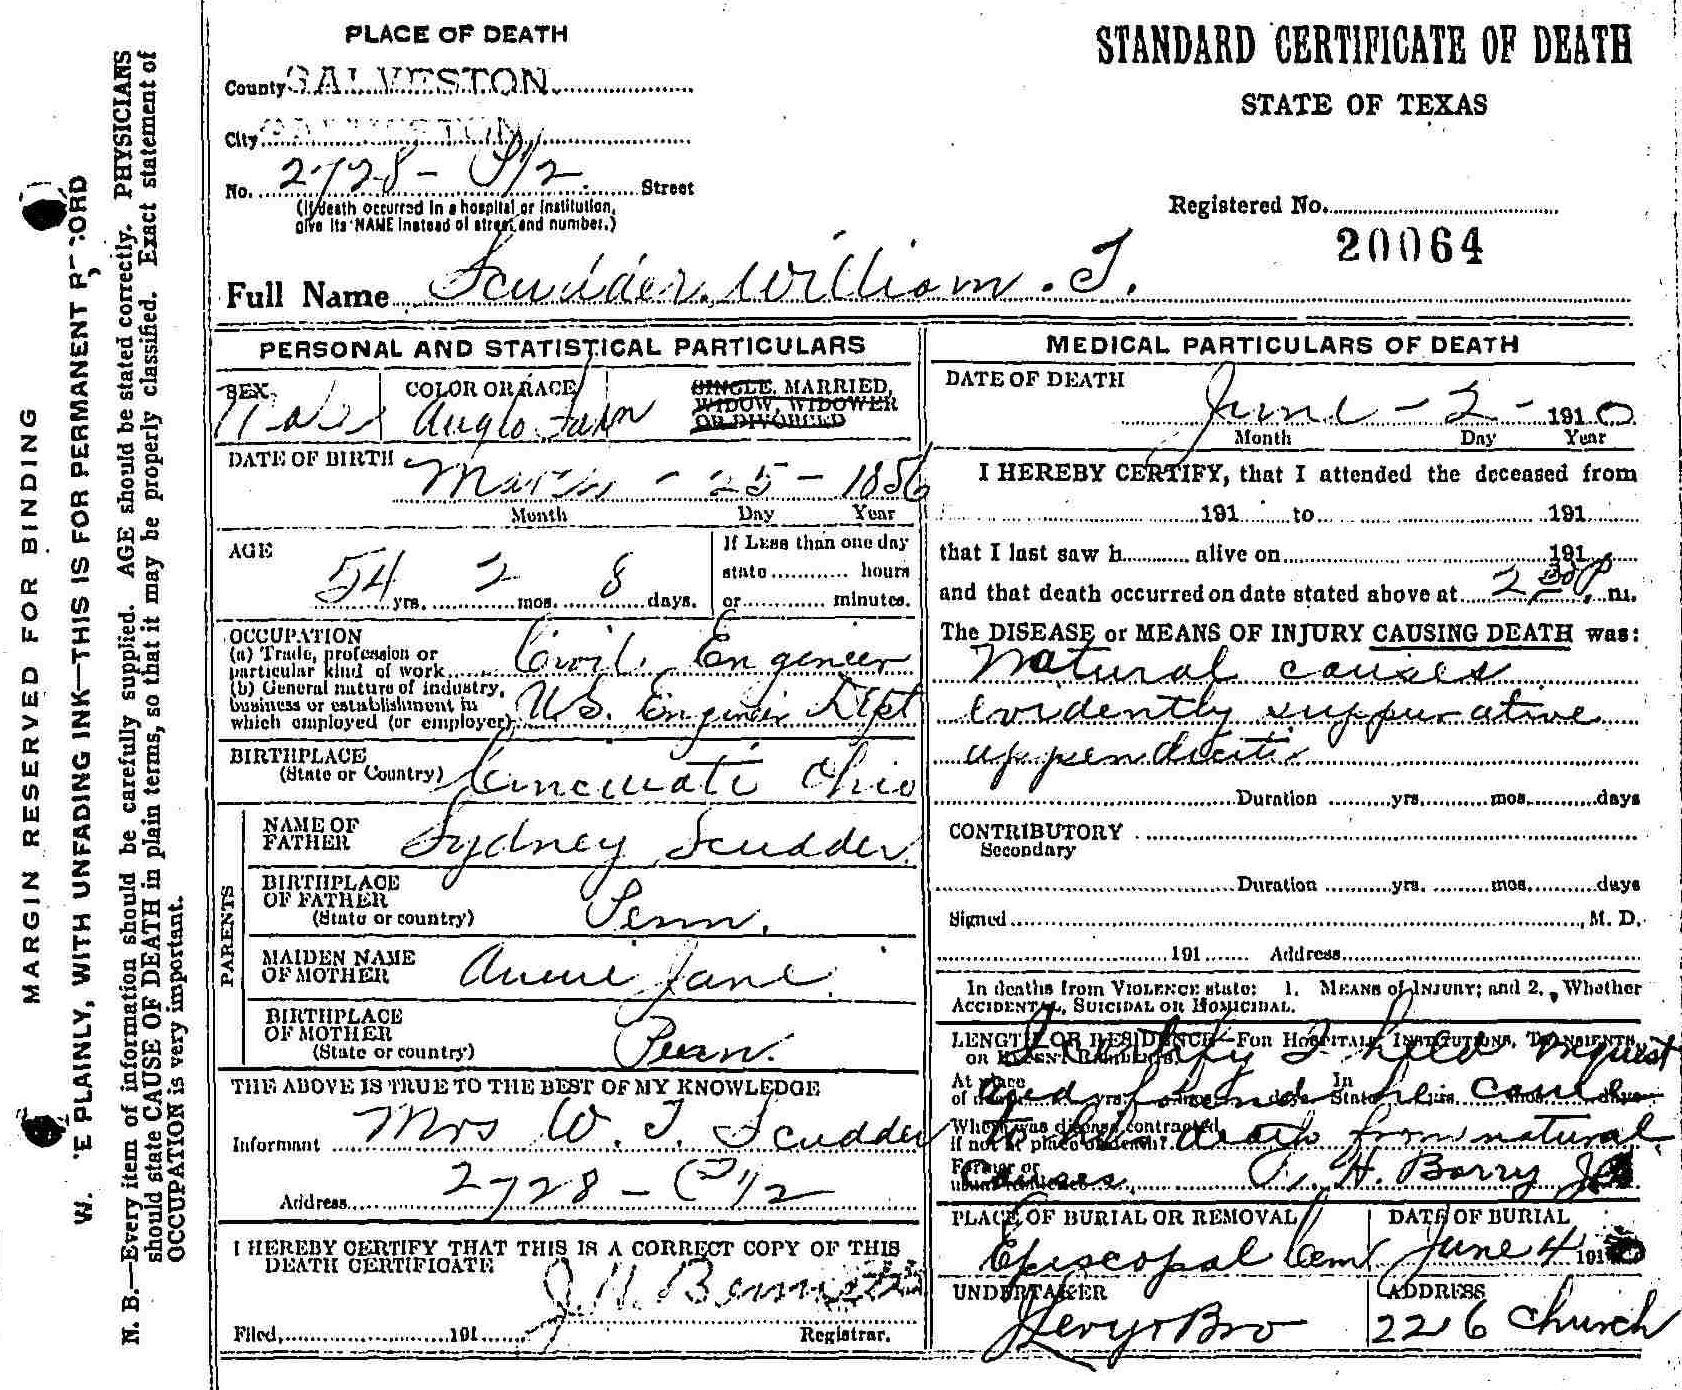 PLACE OF DEATH
County GALVESTON
City GALVESTON
No. 2728 - P 1/2 Street
(If death occurred in a hospital or institution,
give its NAME instead of street and number.)
STANDARD CERTIFICATE OF DEATH
STATE OF TEXAS
Registered No.
20064
Full Name Scudder, William. T.
PERSONAL AND STATISTICAL PARTICULARS
SEX COLOR OR RACE SINGLE, MARRIED,
WIDOW, WIDOWER
OR DIVORCED
Male Anglo
DATE OF BIRTH March - 25 - 1856
Month Day Year
AGE 54 yrs. 2 mos. 8 days.
If LESS than one day
state hours
or minutes.
OCCUPATION
(a) Trade, profession or
particular kind of work Civil Engineer
(b) General nature of industry,
business or establishment in
which employed (or employer) U.S. Engineer Dept
BIRTHPLACE
(State or Country) Cincinati Ohio
PARENTS
NAME OF
FATHER Sydney Scudder
BIRTHPLACE
OF FATHER
(State or country) Penn.
MAIDEN NAME
OF MOTHER Annie Jane
BIRTHPLACE
OF MOTHER
(State or country) Penn.
THE ABOVE IS TRUE TO THE BEST OF MY KNOWLEDGE
Informant Mrs W. T. Scudder
Address 2728 - P 1/2
I HEREBY CERTIFY THAT THIS IS A CORRECT COPY OF THIS
DEATH CERTIFICATE
J. H.
Filed, 191 Registrar.
MEDICAL PARTICULARS OF DEATH
DATE OF DEATH
June - 2 - 1910
Month Day Year
I HEREBY CERTIFY, that I attended the deceased from
191 to 191
that I last saw h alive on 191
and that death occurred on date stated above at 2 30 P. m.
The DISEASE or MEANS OF INJURY CAUSING DEATH was:
Natural causes
Evidently suppurative
appendicitis
Duration yrs. mos. days
CONTRIBUTORY
Secondary
Duration yrs. mos. days
Signed M. D.
191 Address
In deaths from VIOLENCE state: 1. MEANS of INJURY; and 2, Whether
ACCIDENTAL, SUICIDAL OR HOMICIDAL.
LENGTH OF RESIDENCE—FOR HOSPITALS, INSTITUTIONS, TRANSIENTS,
OR RECENT RESIDENTS.
I certify I held inquest
At place of death yrs. mos. days In State yrs. mos. days
and found he came
Where was disease contracted,
if not at place of death?
to his death from natural
Former or
usual residence
causes. H. Barry J
PLACE OF BURIAL OR REMOVAL DATE OF BURIAL
Episcopal Cem June 4 191
UNDERTAKER ADDRESS
J Levy & Bro 2216 Church
MARGIN RESERVED FOR BINDING
W. E PLAINLY, WITH UNFADING INK—THIS IS FOR PERMANENT R ORD
N. B.—Every item of information should be carefully supplied. AGE should be stated correctly. PHYSICIANS
should state CAUSE OF DEATH in plain terms, so that it may be properly classified. Exact statement of
OCCUPATION is very important.